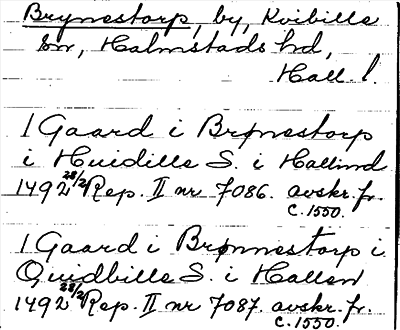 Brynestorp, by, Kvibille
sn, Halmstads hd,
Hall. l.
1 Gaard i Brønestorp
i Huidille S. i Hallind
1492 28/2 Rep. II nr 7086. avskr. fr.
c. 1550.
1 Gaard i Brønnestorp i
Quidbille S. i Hallen
1492 28/2 Rep. II nr 7087. avskr. fr.
c. 1550.